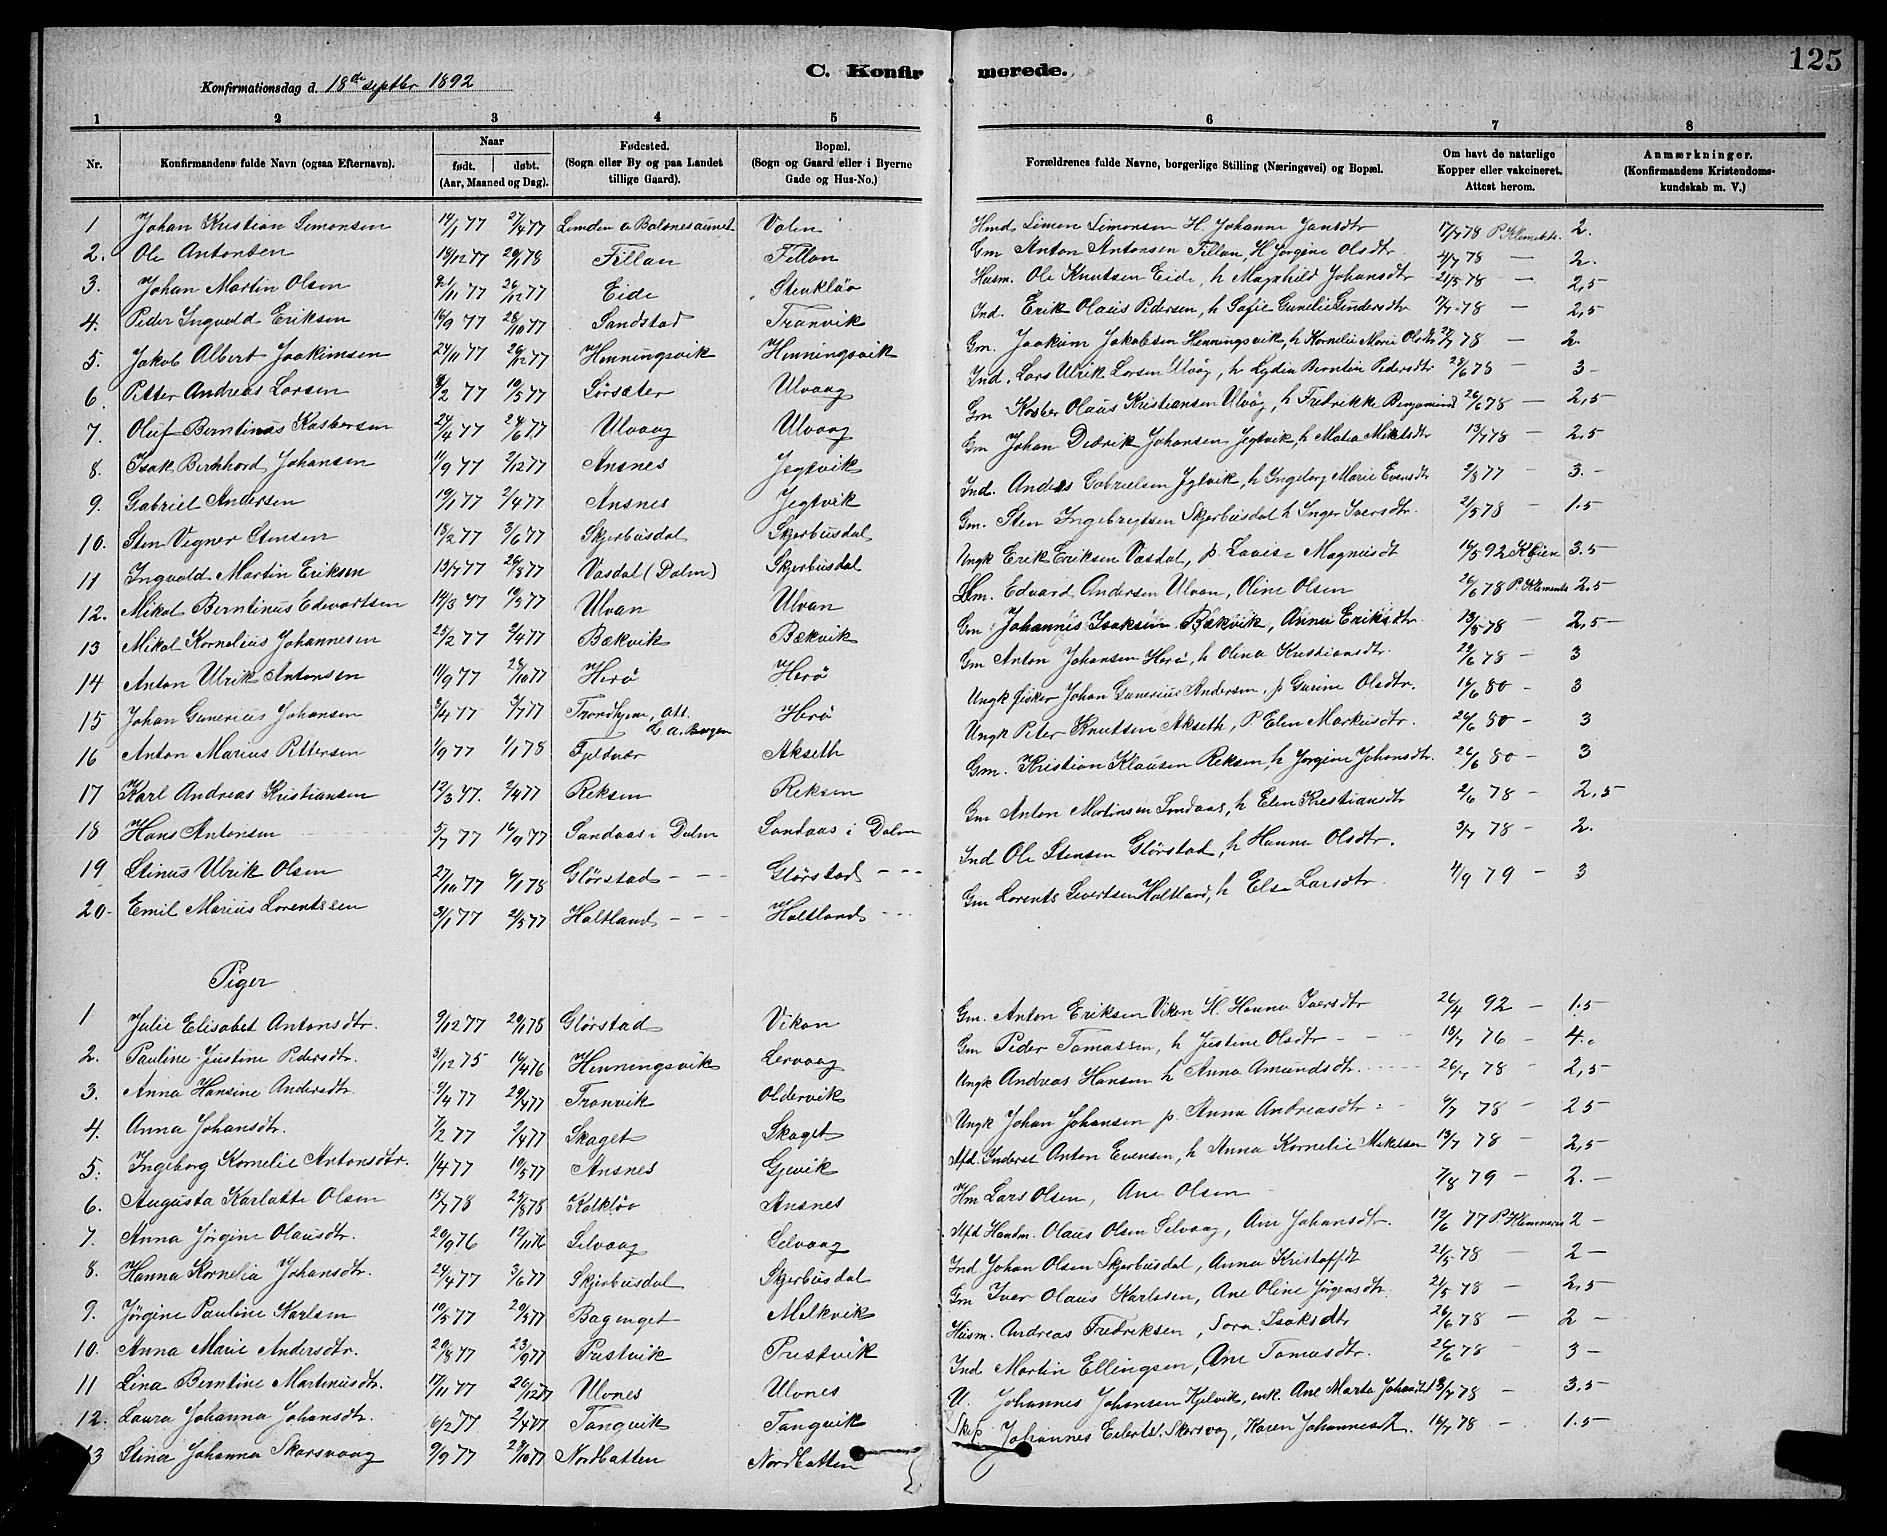 125
C. Konfirmerede.
Konfirmationsdag d. 18de septbr 1892
1 2 3 4 5 6 7 8
Nr. Konfirmandens fulde Navn (ogsaa Efternavn). Naar født. døbt. (Aar, Maaned og Dag). Fødested. (Sogn eller By og paa Landet tillige Gaard). Bopæl. (Sogn og Gaard eller i Byerne Gade og Hus-No.) Forældrenes fulde Navne, borgerlige Stilling (Næringsvei) og Bopæl. Om havt de naturlige Kopper eller vakcineret. Attest herom. Anmærkninger. (Konfirmandens Kristendomskundskab m. V.)
1 Johan Kristian Simonsen 14/1 77 27/4 77 Valen Hmd Simon Simonsen H. Johanna Jansdtr 17/7 78 2.
2. Ole Antonsen 18/12 77 20/1 78 Fillan Fillan Gm Anton Antonsen Fillan, H Jørgine Olsdtr 4/7 78 — 2.
3. Johan Martin Olsen 26/12 77 Eide Stenkløv Husm. Ole Knutsen Eide, h Magnhild Johansdtr 21/5 78 — 2,5
4. Peder Ingvald Eriksen 16/9 77 28/10 77 Sandstad Tranvik Ind. Erik Olaus Pedersen, h Sofie Gunelie Gundersdtr 78 — 2,5
5. Jakob Albert Joakimsen 24/11 77 26/12 77 Henningsvik Henningsvik Gm. Joakim Jakobsen Henningsvik, h Kornelie Marie Olsdtr 78 — 2
6. Petter Andreas Larsen 77 10/5 77 Sørsæter Ulvaag Ind. Lars Ulrik Larsen Ulvåg, h Lydia Berntin Pedersdtr 28/6 78 3 —
7. Oluf Berntinus Kasbersen 24/4 77 24/6 77 Ulvaag Ulvaag Gm Kasber Olaus Kristiansen Ulvåg, h Fredrikke Benjamind 26/6 78 — 2,5
8. Isak Bernhard Johansen 11/9 77 2/12 77 Ansnes Jegtvik Gm Johan Didrik Johansen Jegtvik, h Mata Mikelsdtr 13/7 78 — 2.5
9. Gabriel Andersen 19/1 77 2/4 77 Ansnes Jegtvik Ind. Anders Gabrielsen Jegtvik, h Ingeborg Marie Evensdtr 2/8 77 — 3.—
10. Sten Vegner Stensen 18/2 77 3/6 77 Skjerbusdal Skjerbusdal Gm. Sten Ingebregtsen Skjerbusdal h Inger Iversdtr. 21/5 78 — 1.5
11 Ingvald Martin Eriksen 19/7 77 26/8 77 Vasdal (Dolm) Skjerbusdal Ungk Erik Eriksen Vasdal, p. Lovise Magnusdt 16/5 92 3.5 —
12. Mikal Berntinus Edvartsen 14/3 77 10/5 77 Ulvan Ulvan Edvard Andersen Ulvan, Oline Olsen 26/6 78 P. Klements 2,5
13 Mikal Kornelius Johannesen 25/2 77 2/4 77 Bækvik Bækvik Gm Johannes Isaksen Bækvik, Anna Eriksdtr 13/5 78 — 2,5 —
14 Anton Ulrik Antonsen 11/9 77 28/10 77 Herø Herø Gm Anton Johansen Herø, h Olina Kristiansdtr. 29/6 78 — 3
15 Johan Gunerius Johansen 3/4 77 3/7 77 Trondhjem, att. Herø Ungk fisker Johan Gunerius Andersen, p Gurine Olsdtr. 16/6 80 — 3
16 Anton Marius Pettersen 1/9 77 1/1 78 Fjeldvær Akseth Ungk Peter Knutsen Akseth, P. Elen Markusdtr. 26/6 80 — 3
17 Karl Andreas Kristiansen 12/3 77. 2/4 77 Reksen Reksen Gm. Kristian Klausen Reksen, h Jørgine Johansdtr. 26/6 80 — 3
18 Hans Antonsen 5/7 77 16/9 77 Sandaas i Dolm Sandaas i Dolm Gm Anton Martinsen Sandaas, h Elen Kristiansdtr 2/6 78 — 2,5
19 Stinus Ulrik Olsen 27/10 77 6/1 78 Glørstad — — Glørstad — — Ind Ole Stensen Glørstad, h Hanna Olsdtr. 3/7 78 — 2.
20. Emil Marius Lorentssen 31/1 77 2/5 77 Haltland — — Haltland — — Gm Lorents Sivertsen Haltland, h Else Larsdtr. 4/9 79 — 3
Piger
1 Julie Elisabet Antonsdtr. 9/12 77 20/1 78 Glørstad Vikan Gm. Anton Eriksen Viken H. Hanna Iversdtr 26/4 92 — 1.5
2. Pauline Justine Pedersdtr. 31/12 75 16/4 76 Henningsvik Lervaag Gm Peder Tomassen, h Justine Olsdtr — — 18/7 76 — 4.
3. Anna Hansine Andersdtr. 77 29/4 77 Tranvik Oldervik Ungk Andreas Hansen h Anna Amundsdtr. 26/7 78 — 2,5
4. Anna Johansdtr. 7/2 77 2/4 77 Skaget Skaget Ungk Johan Johansen p. Anna Andreasdtr 6/7 78 — 2 5
5. Ingeborg Kornelie Antonsdtr. 1/4 77 10/5 77 Ansnes Gjevik Afd. Inderst Anton Evensen, h Anna Kornelie Mikelsen 13/7 78 — 2,5
6. Augusta Karlotte Olsen 15/7 78 25/8 78 Kalkløv Ansnes Hm Lars Olsen, Ane Olsen 7/8 79 — 2. —
7. Anna Jørgine Olausdtr. 20/9 76 12/11 76 Selvaag Selvaag Afd Handm. Olaus Olsen Selvaag, Ane Johansdtr. 12/6 77 2 —
8. Hanna Kornelia Johansdtr. 24/4 77 3/6 77 Skjerbusdal Skjerbusdal Ind. Johan Olsen Skjerbusdal, Anna Kristoffdt 21/5 78 — 2 —
9. Jørgine Pauline Karlsen 10/5 77 20/5 77 Bagenget Melkvik Gm Iver Olaus Karlssen, Ane Oline Jørgensdtr. 21/5 78 — 2,5
10. Anna Marie Andersdtr. 20/8 77 23/9 77 Prestvik Prestvik Husm. Andreas Fredriksen, Sara Isaksdtr 26/6 78 — 2 —
11 Lina Berntine Martinusdtr. 17/11 77 26/12 77 Ulvnes Ulvnes Ind Martin Ellingsen, Ane Tomasdtr. 26/6 78 — 3 —
12. Laura Johanna Johansdtr. 6/2 77 2/4 77 Tangvik Tangvik U. Johannes Johansen Kjelvik, enk. Ane Marta Johansd 3/7 78 — 3.5 —
13 Stina Johanna Skarsvaag 9/9 77 29/10 77 Nordbotten Nordbotten Johannes Eilerts. Skarsvog, Karen Johannesd. 16/7 78 — 1.5 —